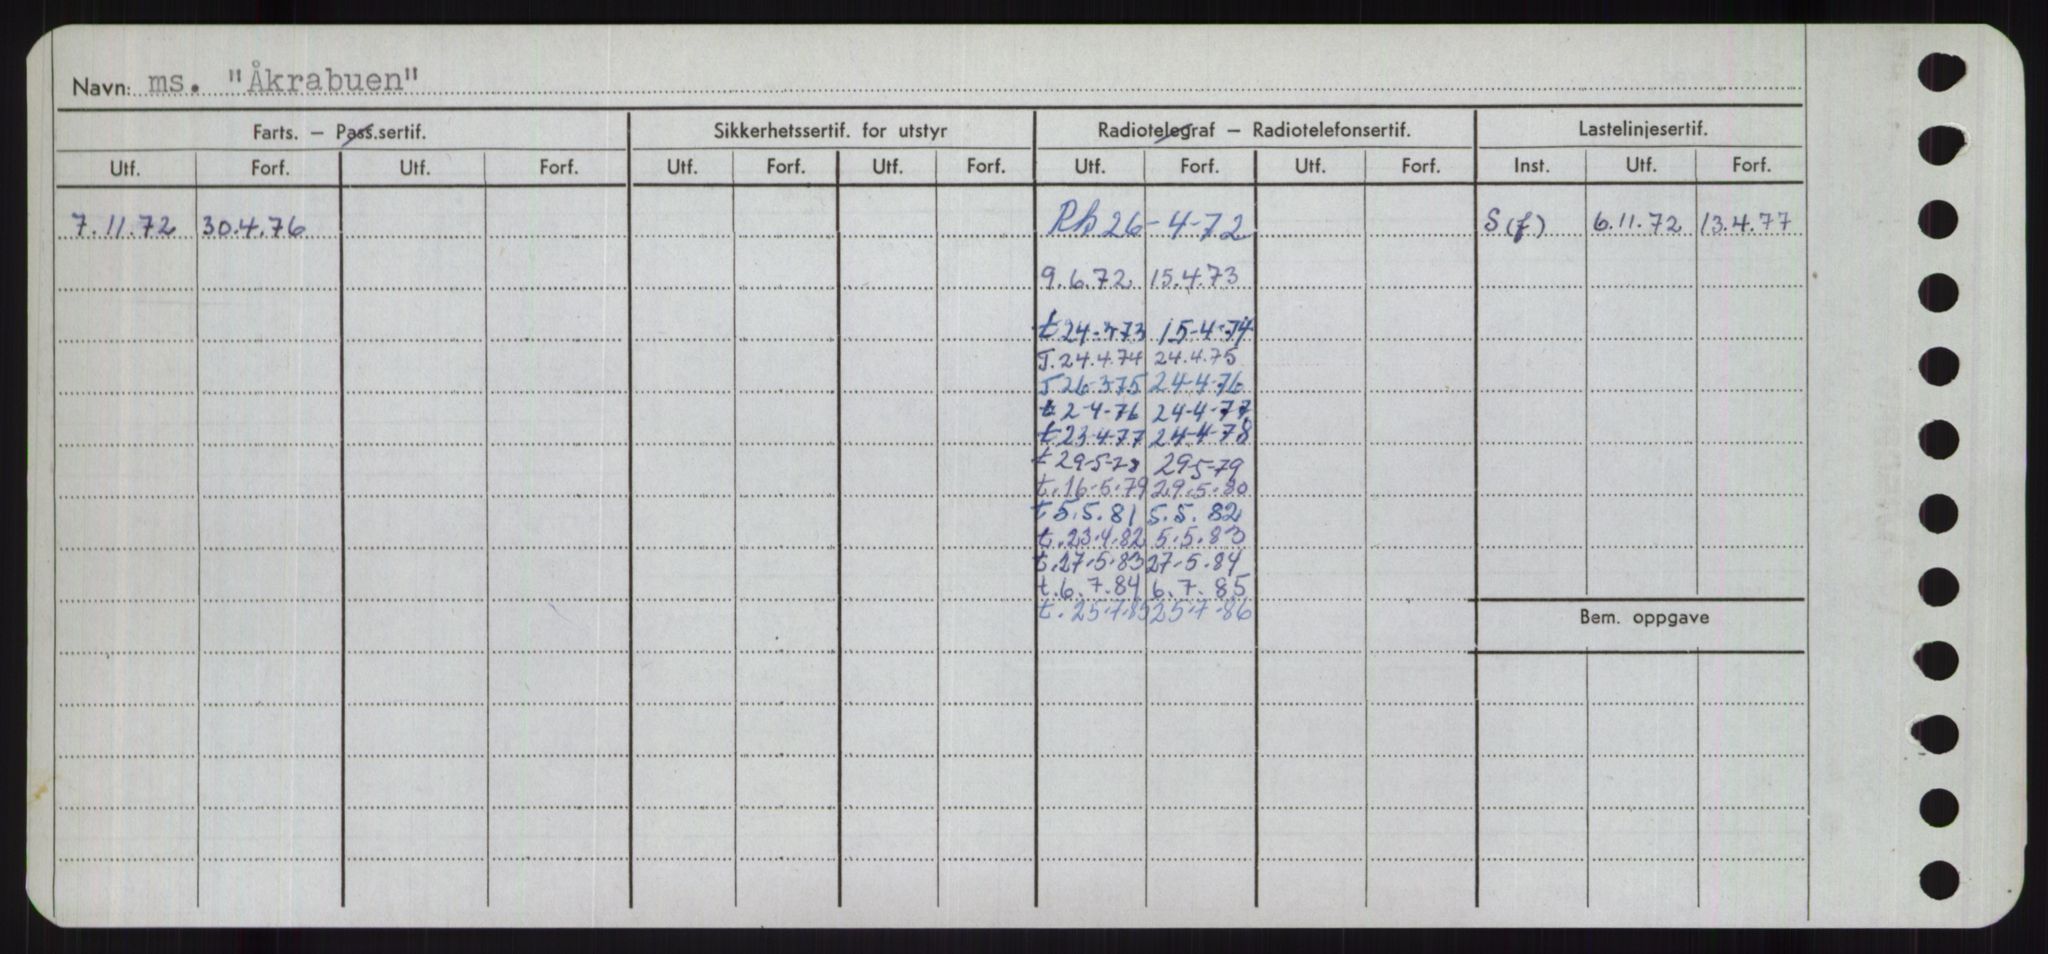 Navn: ms. "Åkrabuen"
Farts. – Pass.sertif. Sikkerhetssertif. for utstyr Radiotelegraf – Radiotelefonsertif. Lastelinjesertif.
Utf. Forf. Utf. Forf. Utf. Forf. Utf. Forf. Utf. Forf. Utf. Forf. Inst. Utf. Forf.
7.11.72 30.4.76 26-4-72 S(f) 6.11.72 13.4.77
9.6.72 15.4.73
t 24-3-73 15-4-74
T. 24.4.74 24.4.75
T 26-3-75 24-4-76
t 2-4-76 24-4-77
t 23-4-77 24-4-78
t 29-5- 29-5-79
t. 16-5-79 29.5.80
t 5.5.81 5.5.82
t. 23.4.82 5.5.83
t. 27.5.83 27.5.84
t. 6.7.84 6.7.85
t. 25.7.85 25.7.86
Bem. oppgave